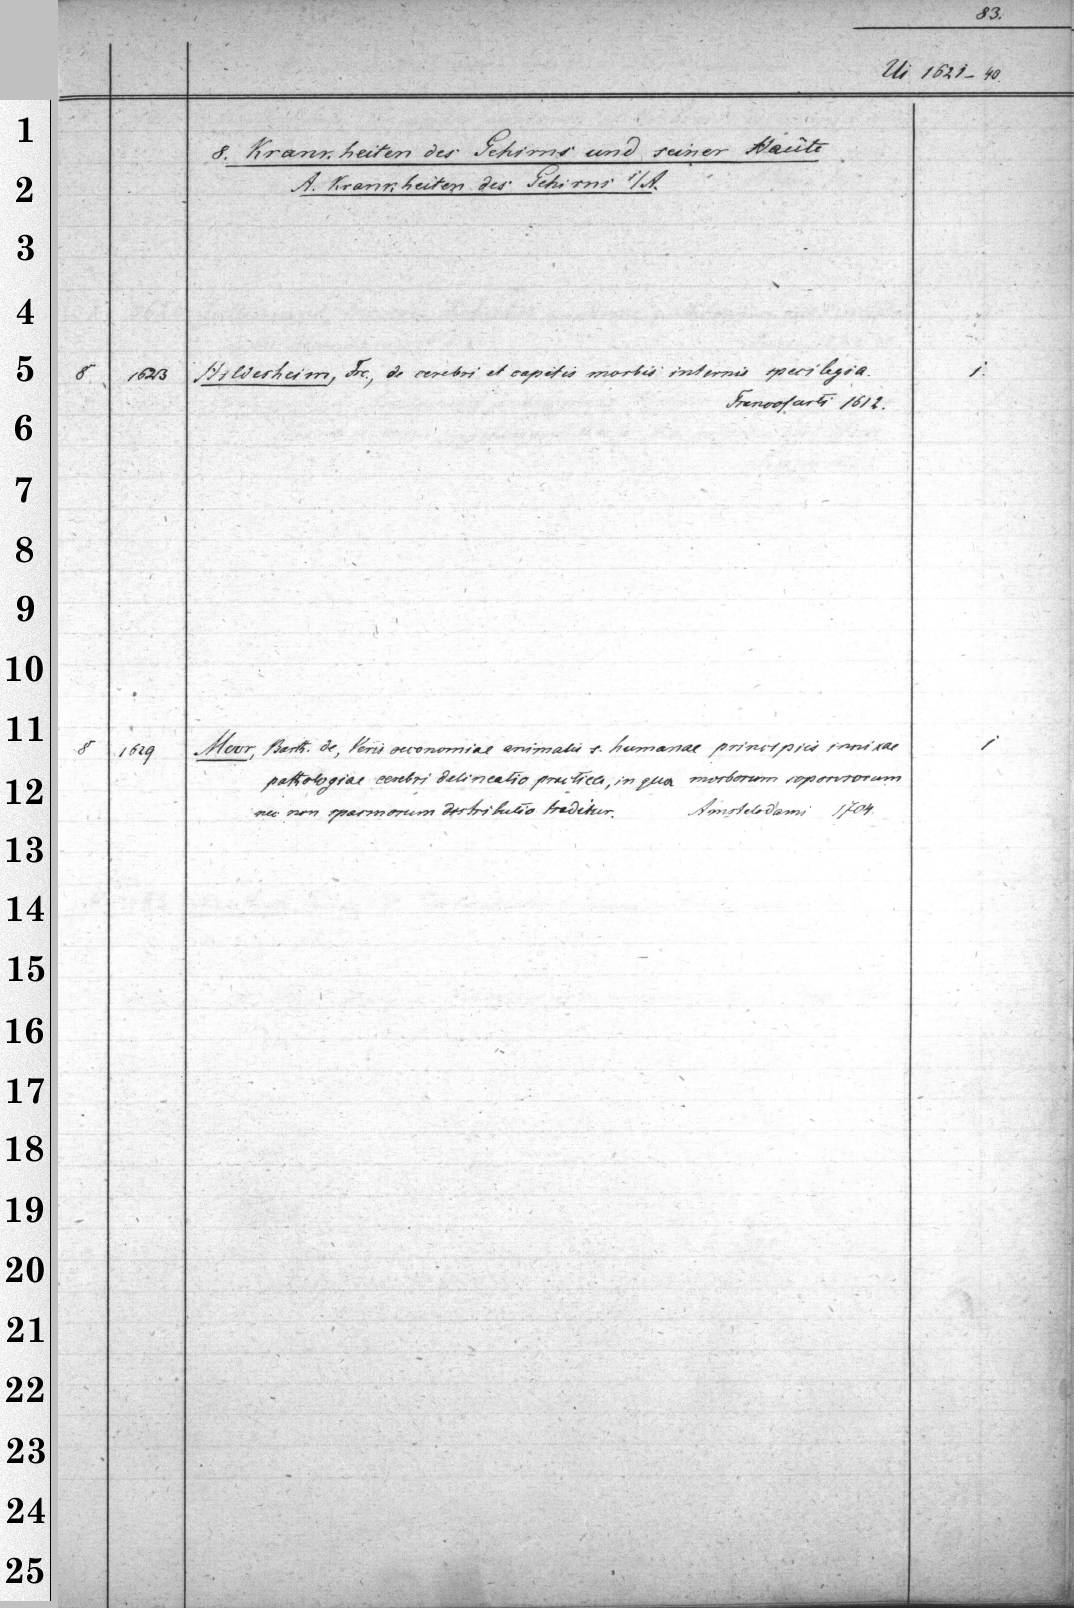 83.
Ui 1621-40.
1
8. Krankheiten des Gehirns und seiner Haüte
2
A. Krankheiten des Gehirns i/A.
3
4
5
8 1623 Hildesheim, Frc., de cerebri et capitis morbis internis specilegia. 1.
Francofurti 1612.
6
7
8
9
10
11
8 1629 Moor, Barth. de, Veris oeconomiae animalis s. humanae principiis innixae 1
pathologiae cerebri delineatio practica, in qua morborum soporosorum
12
nec non spasmorum distributio traditur. Amstelodami 1704.
13
14
15
16
17
18
19
20
21
22
23
24
25